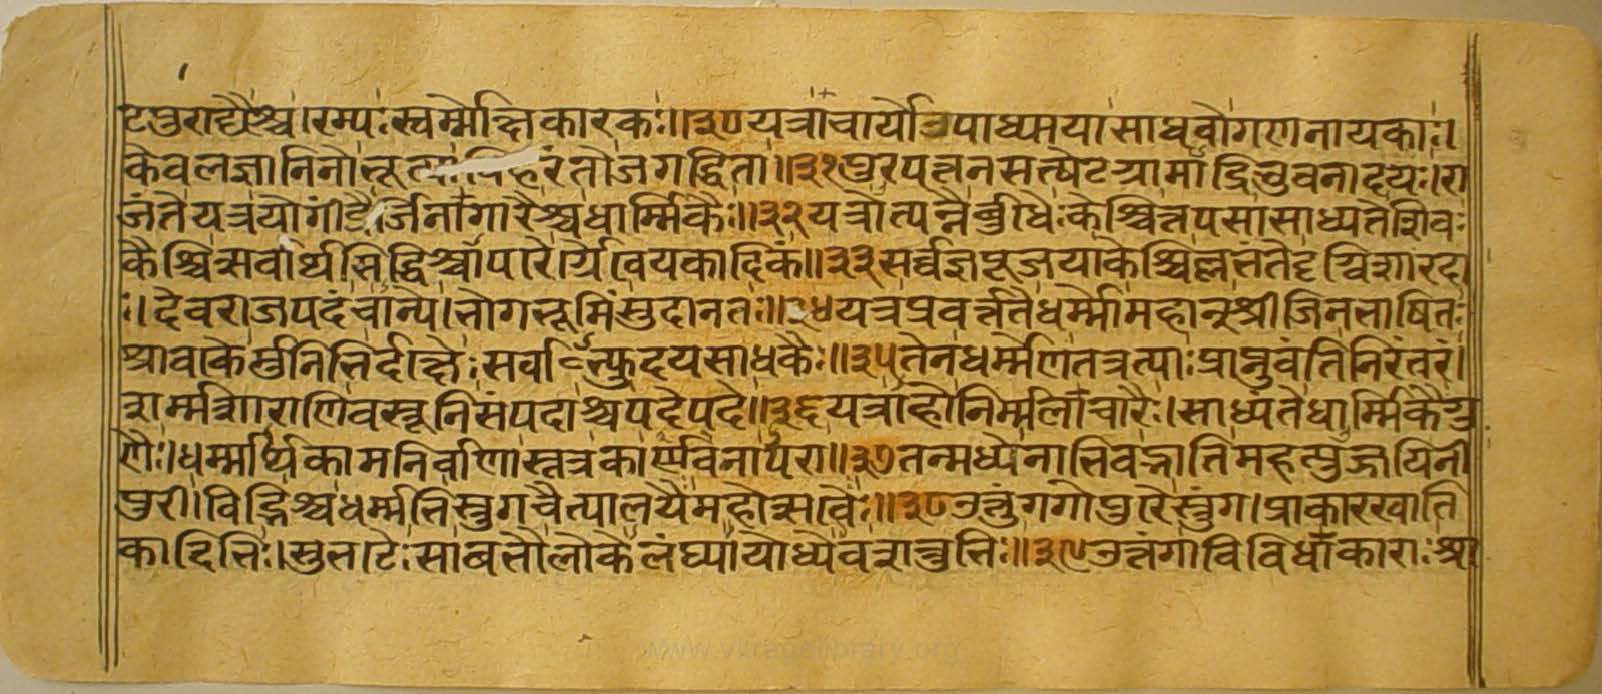 टपुराद्यैश्च।रम्पःस्वर्म्मोक्षकारकः॥३०यत्राचार्योत्रपाध्यायासाधवोगणनायकाः।
केवलज्ञानिनोभूत्या विहरंतोजगद्धिता॥३१पुरपत्तनसत्खेटग्रामाद्रिभुवनादयः।रा
जंतेयत्रयोगींद्रैर्जिनागारैश्चधार्म्मिकैः॥३२यत्रोत्पन्नैर्बुधैःकेश्चित्तपसासाध्यतेशिवः
कैश्चित्सर्वार्थसिद्धिश्चापारेर्ग्रैवेयकादिकं॥३३सर्वज्ञपूजयाकेश्चिल्लभंतेदृग्विशारदा
ः।देवराजपदंचान्ये।भोगभूमिंसुदानतः॥३४यत्रप्रवर्त्ततेधर्म्मोमहान्श्रीजिनभाषितः
श्रावाकेर्मुनिभिर्दक्षेः सर्वाभ्युदयसाधकैः॥३५तेनधर्म्मेणतत्रत्याःप्राप्नुवंतिनिरंतरं।
शर्म्मशाराणिवस्तूनिसंपदाश्चपदेपदे॥३६यत्राहोनिर्म्मलाचारैः।साध्यंतेधार्म्मिकैग्रु
णैः।धर्म्मार्थकामनिर्वाणास्तत्रकार्सवर्नापरा॥३७तन्मध्येनाभिवद्भातिमहत्पुज्जयिनी
पुरी।विद्भिश्चधर्म्मभिस्तुगचैत्यालयैमहोत्सवेः॥३८उत्तुंगगोपुरेस्तुंग।प्राकारखाति
कादिभिः।सुभाटेःसाबभौलोकेलंघ्यायोध्येवशत्रुभिः॥३९उत्तंगाविविधाकाराःश्रा
www.vitragelibrary.org